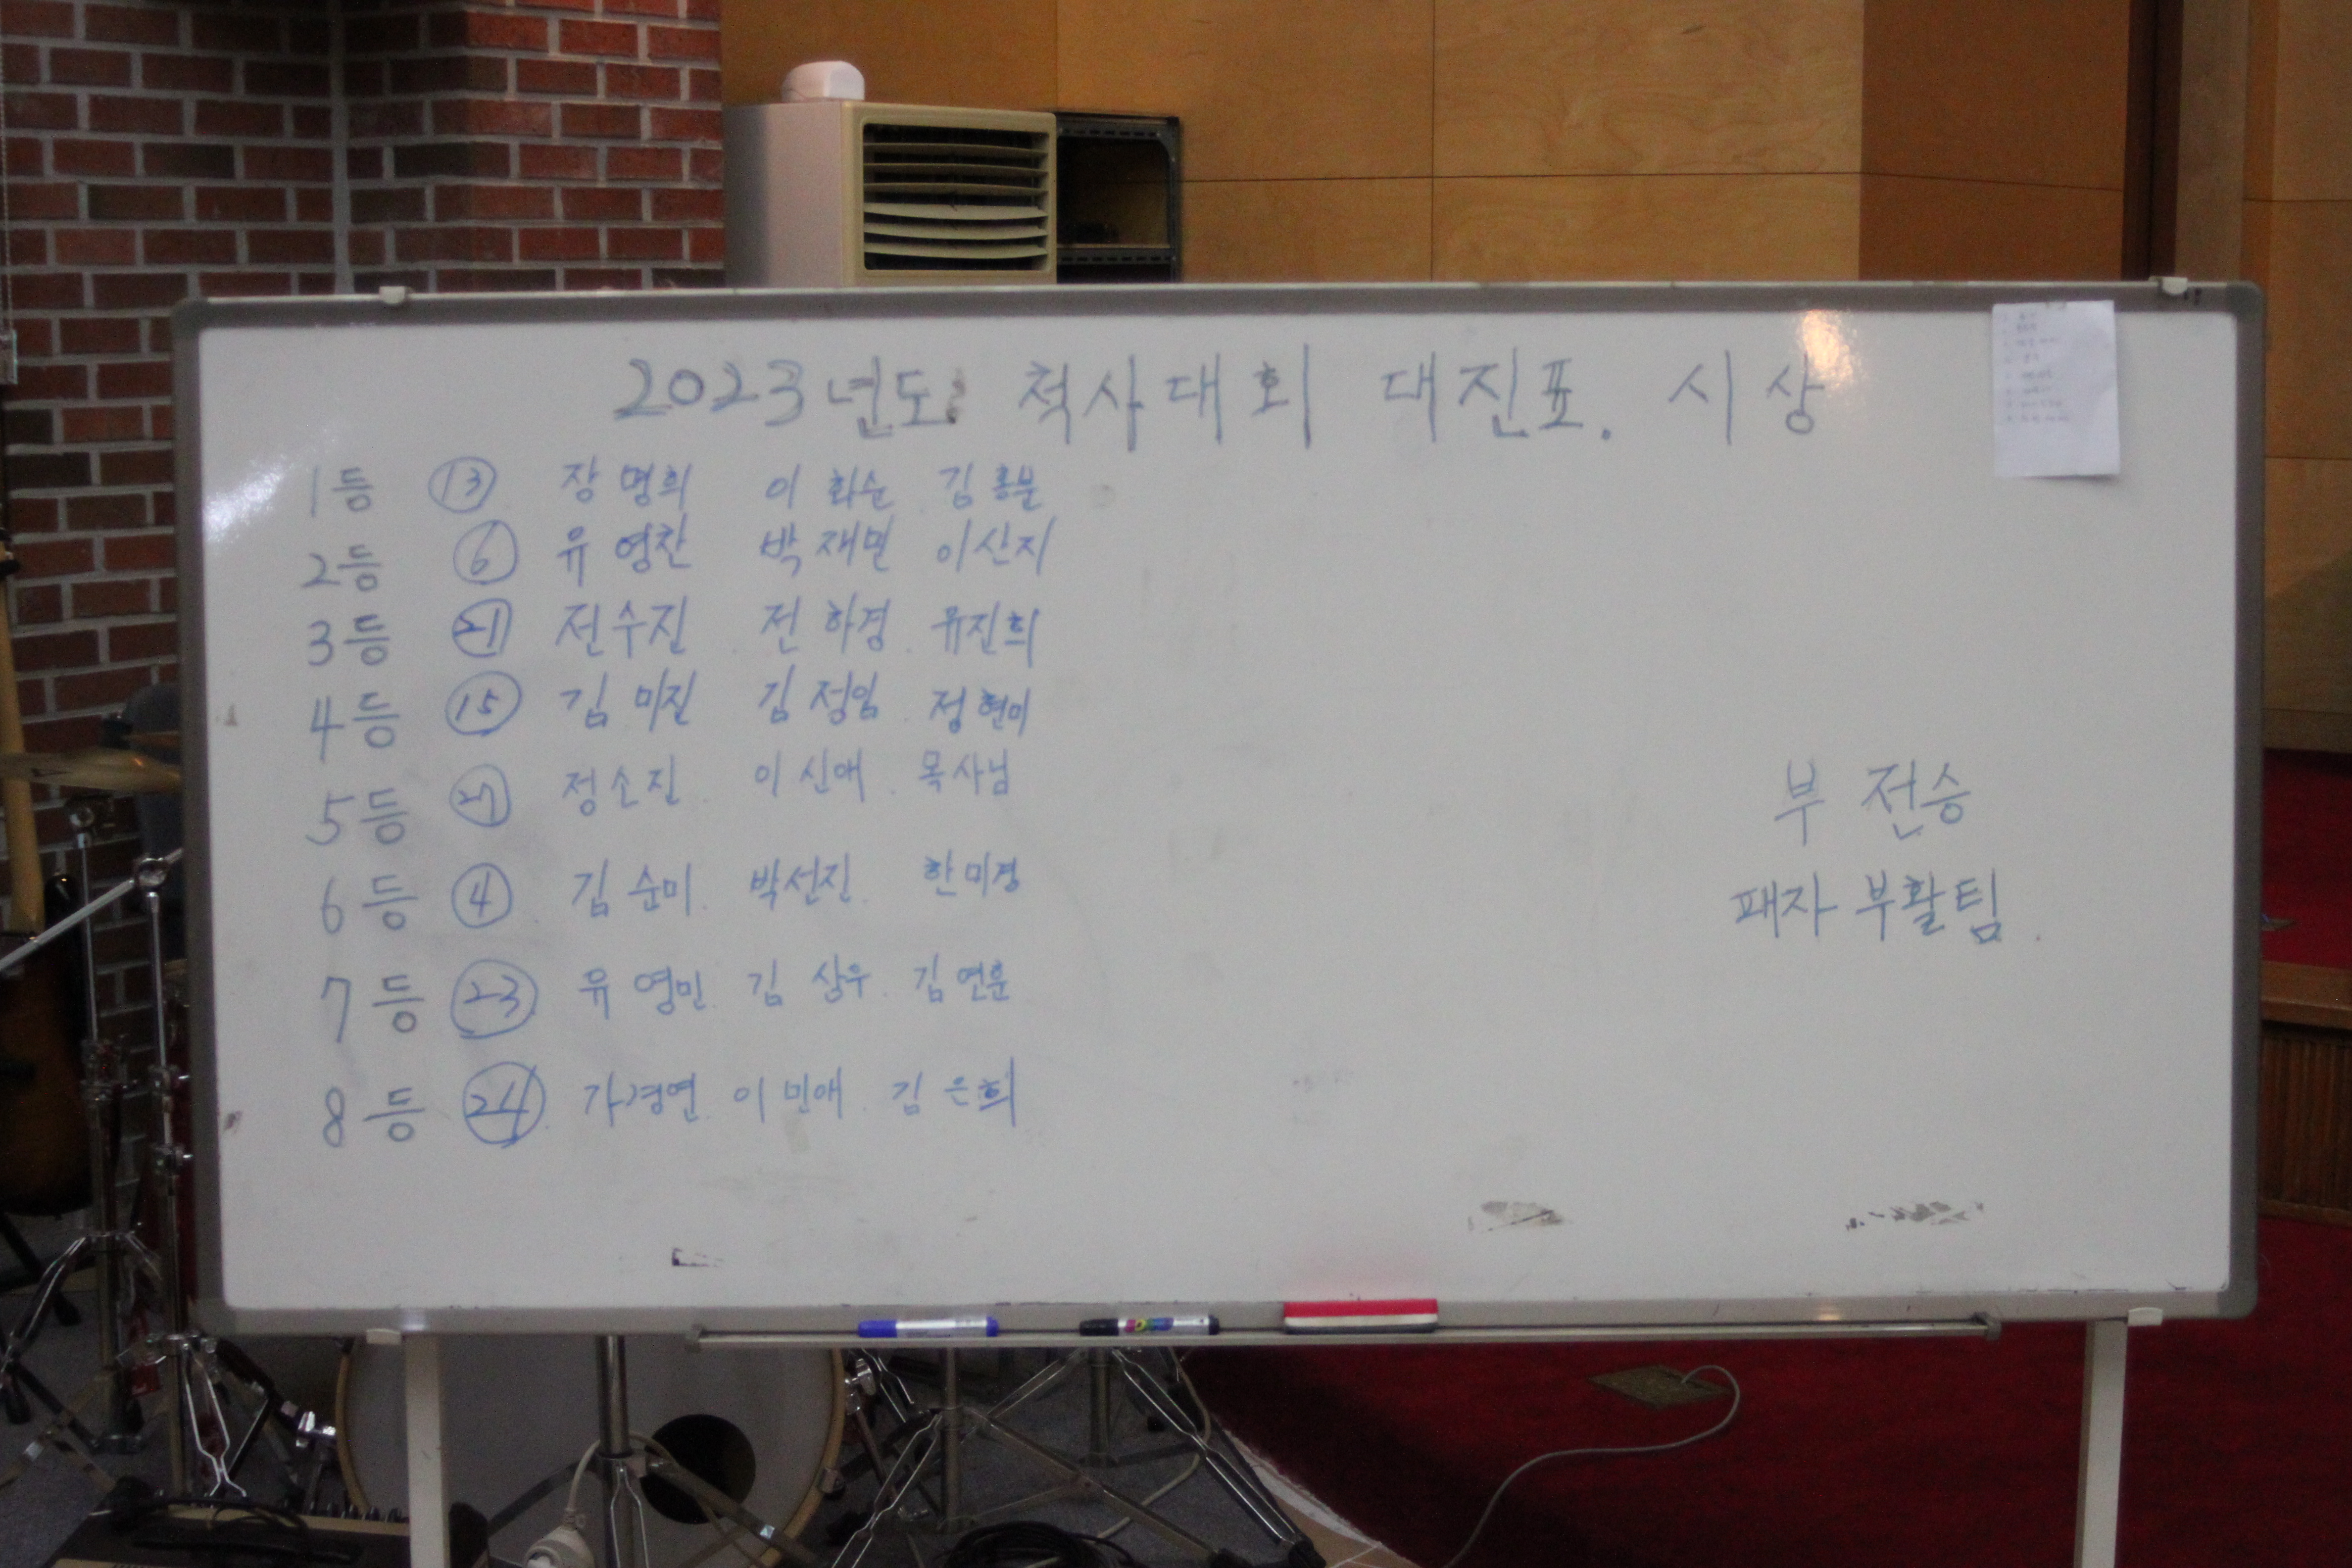 2023년도 척사대회 대진표. 시상
1등 ⑬ 장명희 이화순 김홍분
2등 ⑥ 유영찬 박재민 이산지
3등 ㉑ 전수진 전하경 유진희
4등 ⑮ 김미진 김정임 정현미
5등 정소진 이신애 목사님
6등 ④ 김순미 박선진 한미경
7등 ㉓ 유영민 김상우 김연훈
8등 ㉔ 가경연 이민애 김은희
부 전승
패자 부활팀.